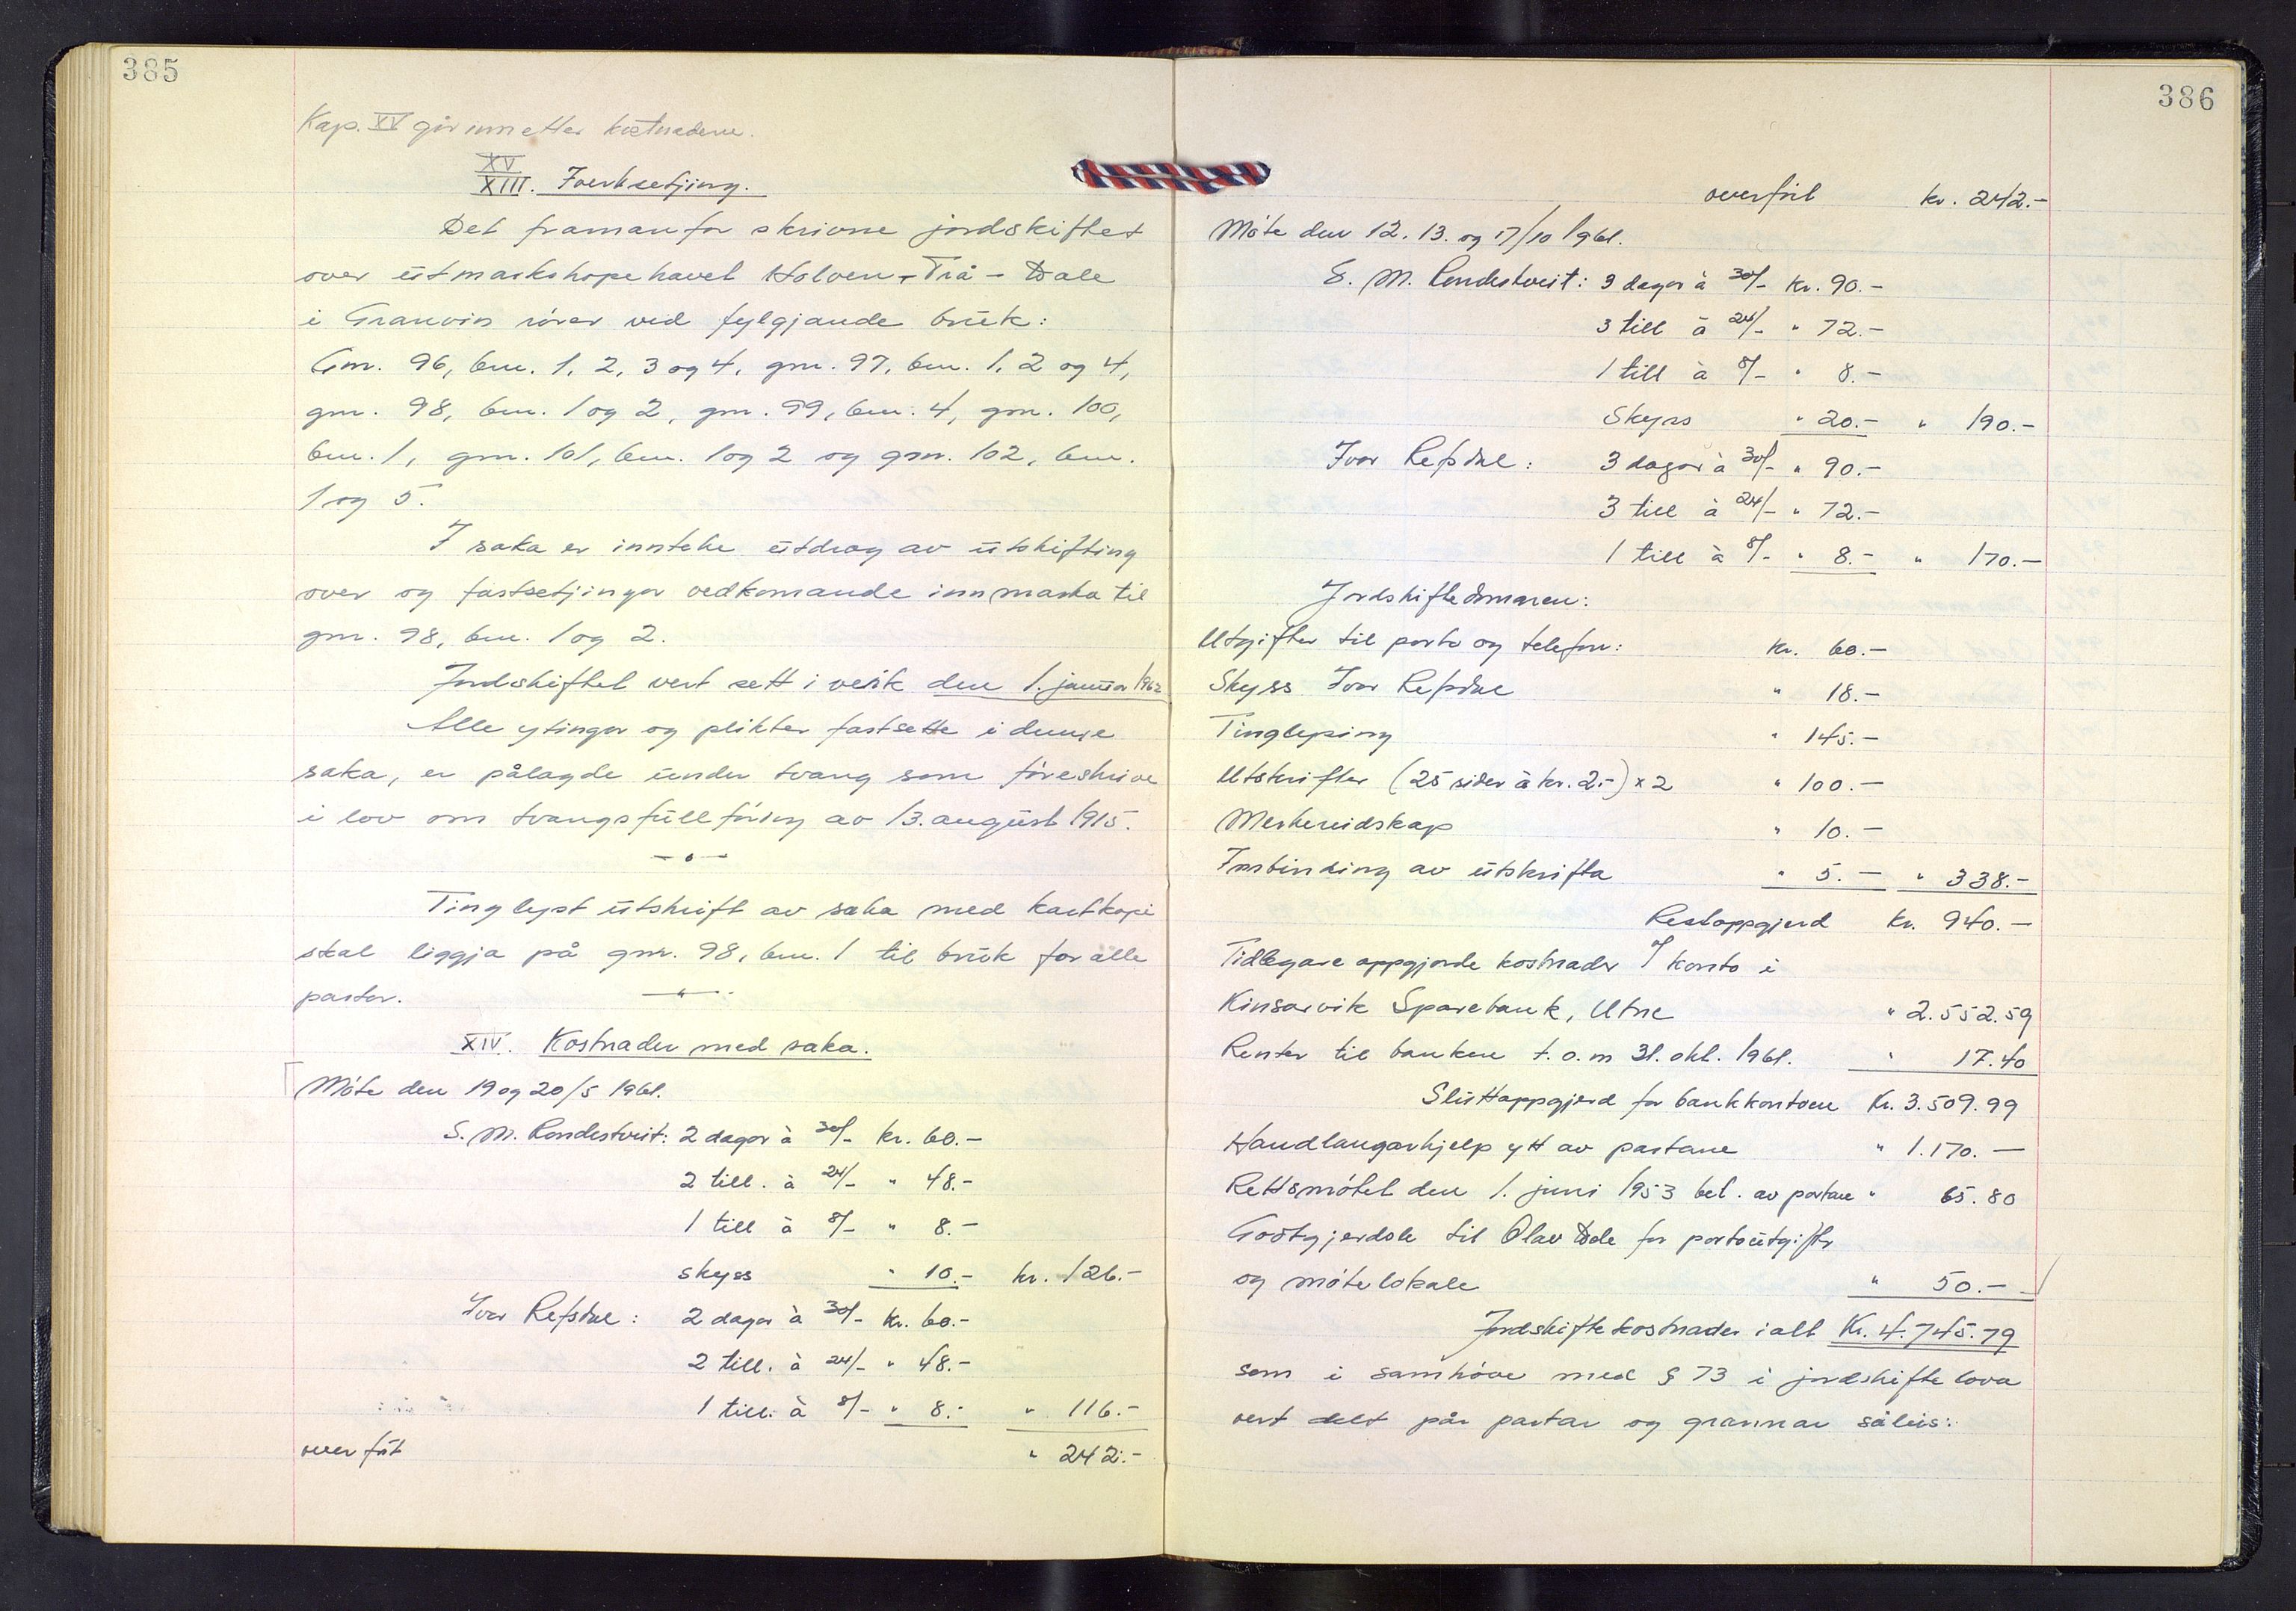 385
Kap. XV går inn etter kostnadene.
XV
XIII. Iverksetjing.
Det framanfor skrivne jordskiftet
over utmarkshopehavet Holven - Trå - Dale
i Granvin rörer ved fylgjande bruk:
Gnr. 96, bnr. 1, 2, 3 og 4, gnr. 97, bnr. 1, 2 og 4,
gnr. 98, bnr. 1 og 2, gnr. 99, bnr. 4, gnr. 100,
bnr. 1, gnr. 101, bnr. 1 og 2 og gnr. 102, bnr.
1 og 5.
I saka er inntehe utdrag av utskifting
over og fastsetjingar vedkomande innmarka til
gnr. 98, bnr. 1 og 2.
Jordskiftet vert sett i verk den 1. januar 1962
Alle ytingar og plikter fastsette i denne
saka, er pålagde under tvang som föreskrive
i lov om tvangsfullföring av 13. august 1915.
— o —
Tinglyst utskrift av saka med kartkopi
skal liggja på gnr. 98, bnr. 1 til bruk for alle
partar. — " —
XIV. Kostnader med saka.
Möte den 19 og 20/5 1961.
S. M. Rondestveit: 2 dagar à 30/- kr. 60.-
2 till. à 24/- " 48.-
1 till à 8/- " 8.-
skyss " 10.- kr. 126.-
Ivar Refsdal: 2 dagar à 30/- kr. 60.-
2 till. à 24/- " 48.-
1 till. à 8/- " 8.- " 116.-
overfört " 242.-
386
overfört kr. 242.-
Möte den 12. 13. og 17/10 1961.
S. M. Rondestveit: 3 dagar à 30/- kr. 90.-
3 till à 24/- " 72.-
1 till à 8/- " 8.-
Skyss " 20.- " 190.-
Ivar Refsdal: 3 dagar à 30/- " 90.-
3 till à 24/- " 72.-
1 till à 8/- " 8.- " 170.-
Jordskiftedomaren:
Utgifter til porto og telefon: kr. 60.-
Skyss Ivar Refsdal " 18.-
Tinglysing " 145.-
Utskrifter (25 sider à kr. 2.-) x 2 " 100.-
Merkereidskap " 10.-
Innbinding av utskrifta " 5.- " 338.-
Restoppgjerd kr. 940.-
Tidlegare oppgjorde kostnader o/ konto i
Kinsarvik Sparebank, Utne " 2.552.59
Renter til banken t.o.m 31. okt. 1961. " 17.40
Sluttoppgjerd for bankkontoen Kr. 3.509.99
Handlangarhjelp ytt av partane " 1.170.-
Rettsmötet den 1. juni 1953 bet. av partane " 65.80
Godtgjerdsle til Olav Dale for portoutgifter
og mötelokale " 50.-
Jordskiftekostnader i alt Kr. 4.745.79
som i samhöve med § 73 i jordskiftelova
vert delt på partar og grannar såleis: